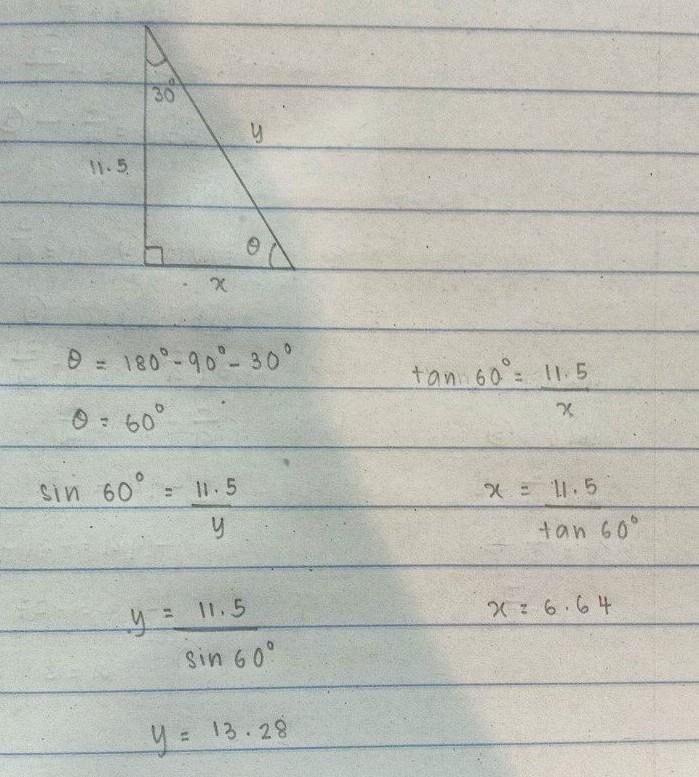 30°
y
11.5
θ
x
θ = 180° - 90° - 30°
θ = 60°
sin 60° = 11.5 / y
y = 11.5 / sin 60°
y = 13.28
tan 60° = 11.5 / x
x = 11.5 / tan 60°
x = 6.64